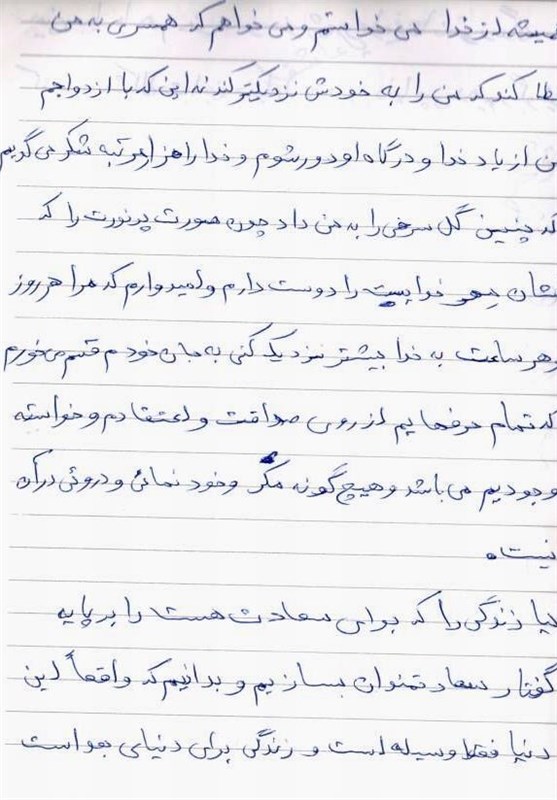 همیشه از خدا می خواستم و می خواهم که همسری به من
عطا کند که من را به خودش نزدیکتر کند نه این که با ازدواجم
من از یاد خدا و درگاه او دور شوم و خدا را هزار مرتبه شکر می گویم
که چنین گل سرخی را به من داد چون صورت پرنورت را که
نشان خداست را دوست دارم و امیدوارم که مرا هر روز
و هر ساعت به خدا بیشتر نزدیک کنی به جان خودم قسم می خورم
که تمام حرفهایم از روی صداقت و اعتقادم و خواسته
وجودیم می باشد و هیچ گونه مکر و خود نمائی و دروئی در آن
نیست.
بیا زندگی را که برای سعادت هست را بر پایه
گفتار سعادتمندان بسازیم و بدانیم که واقعاً این
دنیا فقط وسیله است و زندگی برای دنیای بعد است